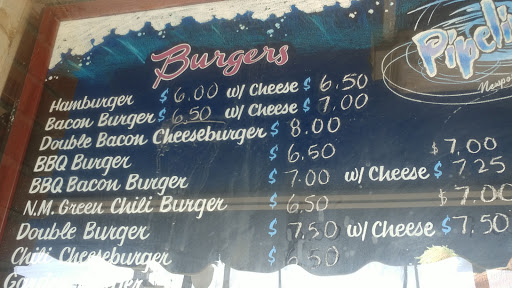 Burgers
Hamburger $ 6.00 w/ Cheese $ 6.50
Bacon Burger $ 6.50 w/ Cheese $ 7.00
Double Bacon Cheeseburger $ 8.00
BBQ Burger $ 6.50 $ 7.00
BBQ Bacon Burger $ 7.00 w/ Cheese $ 7.25
N.M. Green Chili Burger $ 6.50 $ 7.00
Double Burger $ 7.50 w/ Cheese $ 7.50
Chili Cheeseburger $ 6.50
Pipeli
Newpo